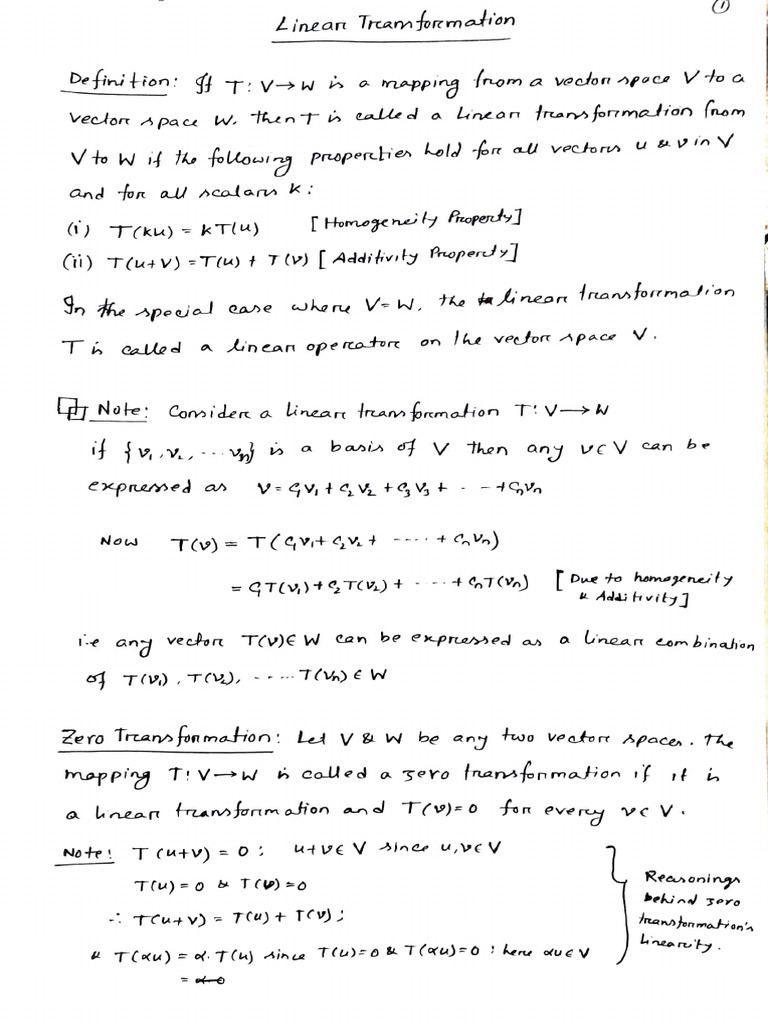 ①
Linear Transformation
Definition: If T: V→W is a mapping from a vector space V to a
vector space W, then T is called a linear transformation from
V to W if the following properties hold for all vectors u & v in V
and for all scalars k:
(i) T(ku) = kT(u) [Homogeneity Property]
(ii) T(u+v) = T(u) + T(v) [Additivity Property]
In the special case where V=W, the linear transformation
T is called a linear operator on the vector space V.
Note: Consider a linear transformation T: V→W
if {v₁, v₂, ... vₙ} is a basis of V then any v∈V can be
expressed as v = c₁v₁ + c₂v₂ + c₃v₃ + · · - + cₙvₙ
Now T(v) = T(c₁v₁ + c₂v₂ + ---- + cₙvₙ)
= c₁T(v₁) + c₂T(v₂) + ····· + cₙT(vₙ) [Due to homogeneity
& Additivity]
i.e any vector T(v)∈W can be expressed as a linear combination
of T(v₁), T(v₂), ------ T(vₙ) ∈ W
Zero Transformation: Let V & W be any two vector spaces. The
mapping T: V→W is called a zero transformation if it is
a linear transformation and T(v)=0 for every v∈V.
Note: T(u+v) = 0 ; u+v∈V since u,v∈V
T(u) = 0 & T(v) = 0
∴ T(u+v) = T(u) + T(v);
& T(αu) = α·T(u) since T(u)=0 & T(αu)=0 ; here αu∈V
= α0
Reasonings
behind zero
transformation's
linearity.